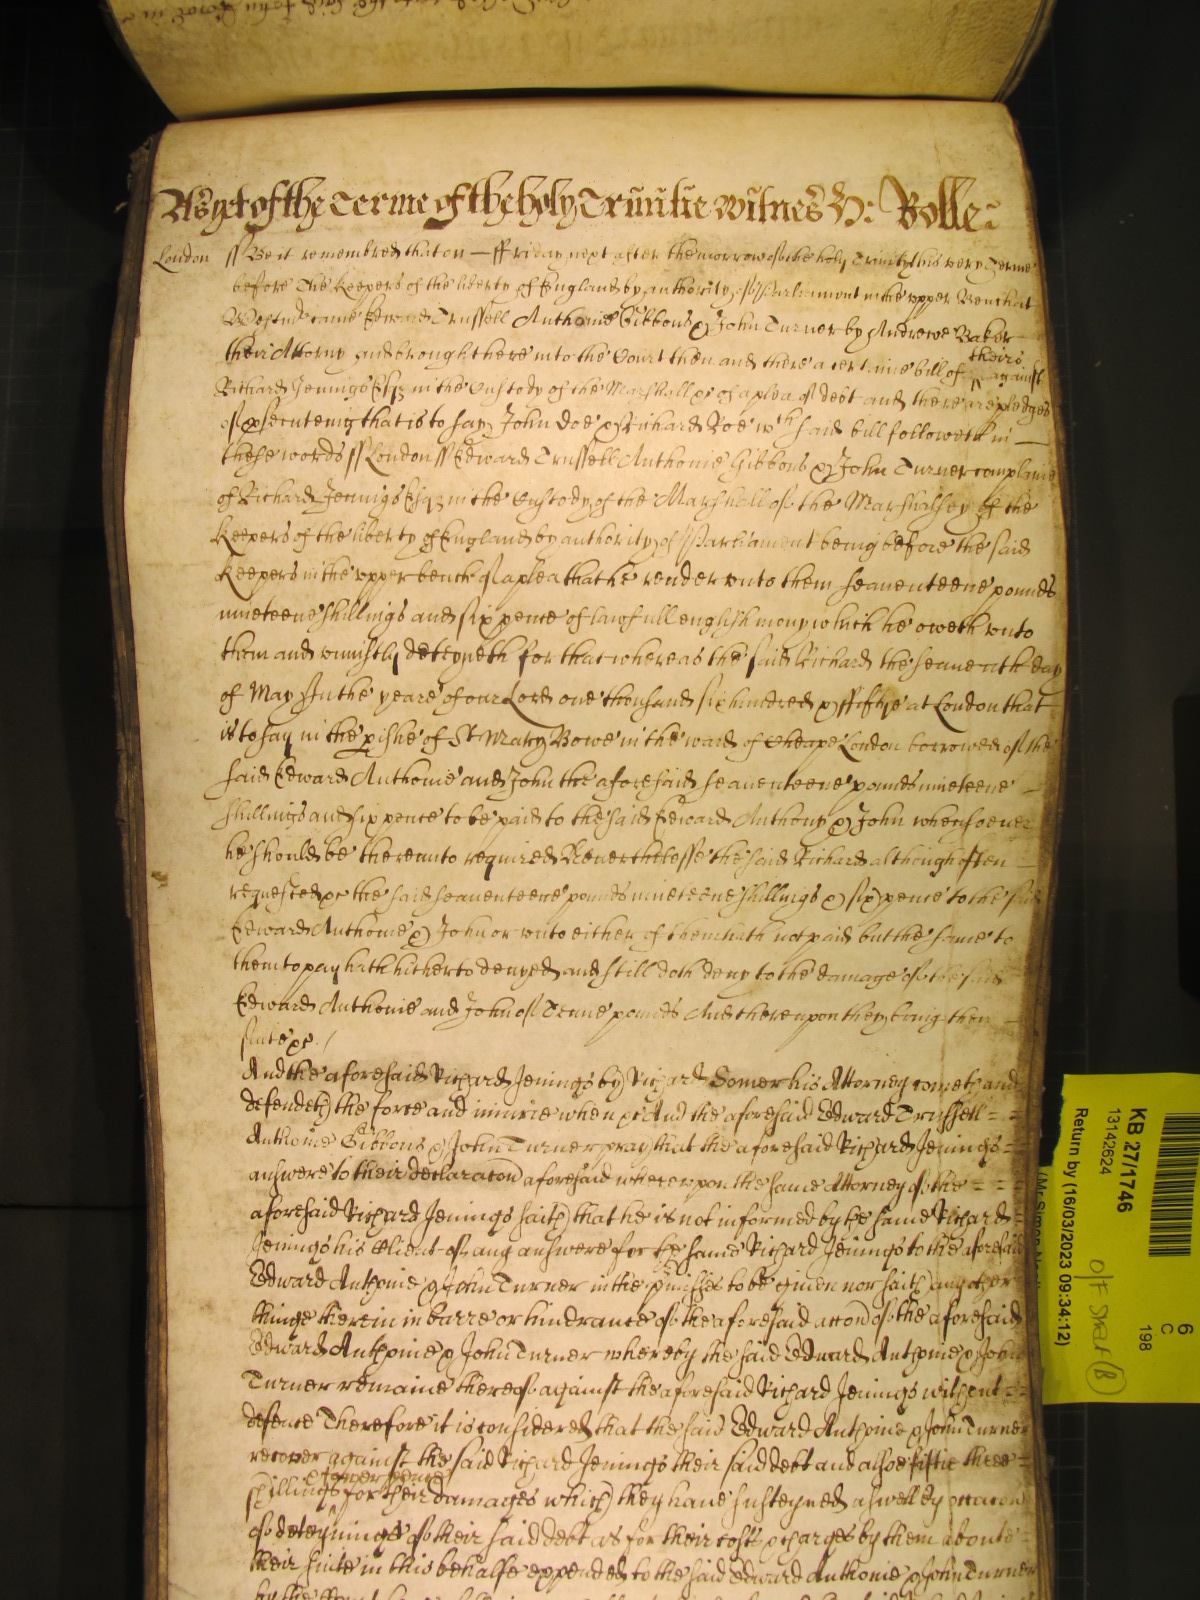 As yet of the Terme of the holy Trinitie Witnes H: Rolle
London ss Be it remembred that on — ffriday next after the morrow of the holy Trinity this very Terme
before The Keepers of the liberty of England by authority of Parliament in the upper Bench at
Westmr came Edward Trussell Anthonie Gibbons & John Turner by Andrewe Baker
their Attorny and brought here into the Court then and there a certaine bill of theirs against
Richard Jenings Esqr in the Custody of the Marshall &c of a plea of debt and there are pledges
of prosecuteing that is to say John Doe & Richard Roe wch said bill followeth in —
these words ss London ss Edward Trussell Anthonie Gibbons & John Turner complaine
of Richard Jenings Esqr in the Custody of the Marshall of the Marshalsey of the
Keepers of the liberty of England by authority of Parliament being before the said
Keepers in the upper bench of a plea that he render unto them seaventeene pounds
nineteene shillings and six pence of lawfull english mony which he oweth unto
them and uniustly deteyneth for that whereas the said Richard the seaventh day
of May In the yeare of our Lord one thousand six hundred & ffiftye at London that
is to say in the pishe of St Mary Bowe in the ward of Cheape London borrowed of the
said Edward Anthonie and John the aforesaid seaventeene pounds nineteene
shillings and six pence to be paid to the said Edward Anthony & John whensoever
he should be thereunto required Neverthelesse the said Richard although often
requested &c the said seaventeene pounds nineteene shillings & six pence to the said
Edward Anthonie & John or unto either of them hath not paid but the same to
them to pay hath hitherto denyed and still doth deny to the damage of the said
Edward Anthonie and John of Tenne pounds And thereupon they bring then
suite &c /
And the aforesaid Richard Jenings by Richard Somer his Attorney cometh and
defendeth the force and iniurie when &c And the aforesaid Edward Trussell
Anthonie Gibbons & John Turner pray that the aforesaid Richard Jenings
answere to their declaracon aforesaid whereupon the same Attorney of the
aforesaid Richard Jenings saith that he is not informed by the same Richard
Jenings his Client of any answere for the same Richard Jenings to the aforesaid
Edward Anthonie & John Turner in the pmisses to be given nor saith any other
thinge therein in barre or hindrance of the aforesaid accon of the aforesaid
Edward Anthonie & John Turner whereby the said Edward Anthonie & John
Turner remaine thereof against the aforesaid Richard Jenings without
defence Therefore it is considered that the said Edward Anthonie & John Turner
recover against the said Richard Jenings their said debt and alsoe fiftie three
shillings fower pence for their damages which they have susteyned aswell by occacon
of deteyninge of their said debt as for their costs & charges by them aboute
their suite in this behalfe expended to the said Edward Anthonie & John Turner
KB 27/1746
13142624
Return by (16/03/2023 09:34:12)
6
C
198